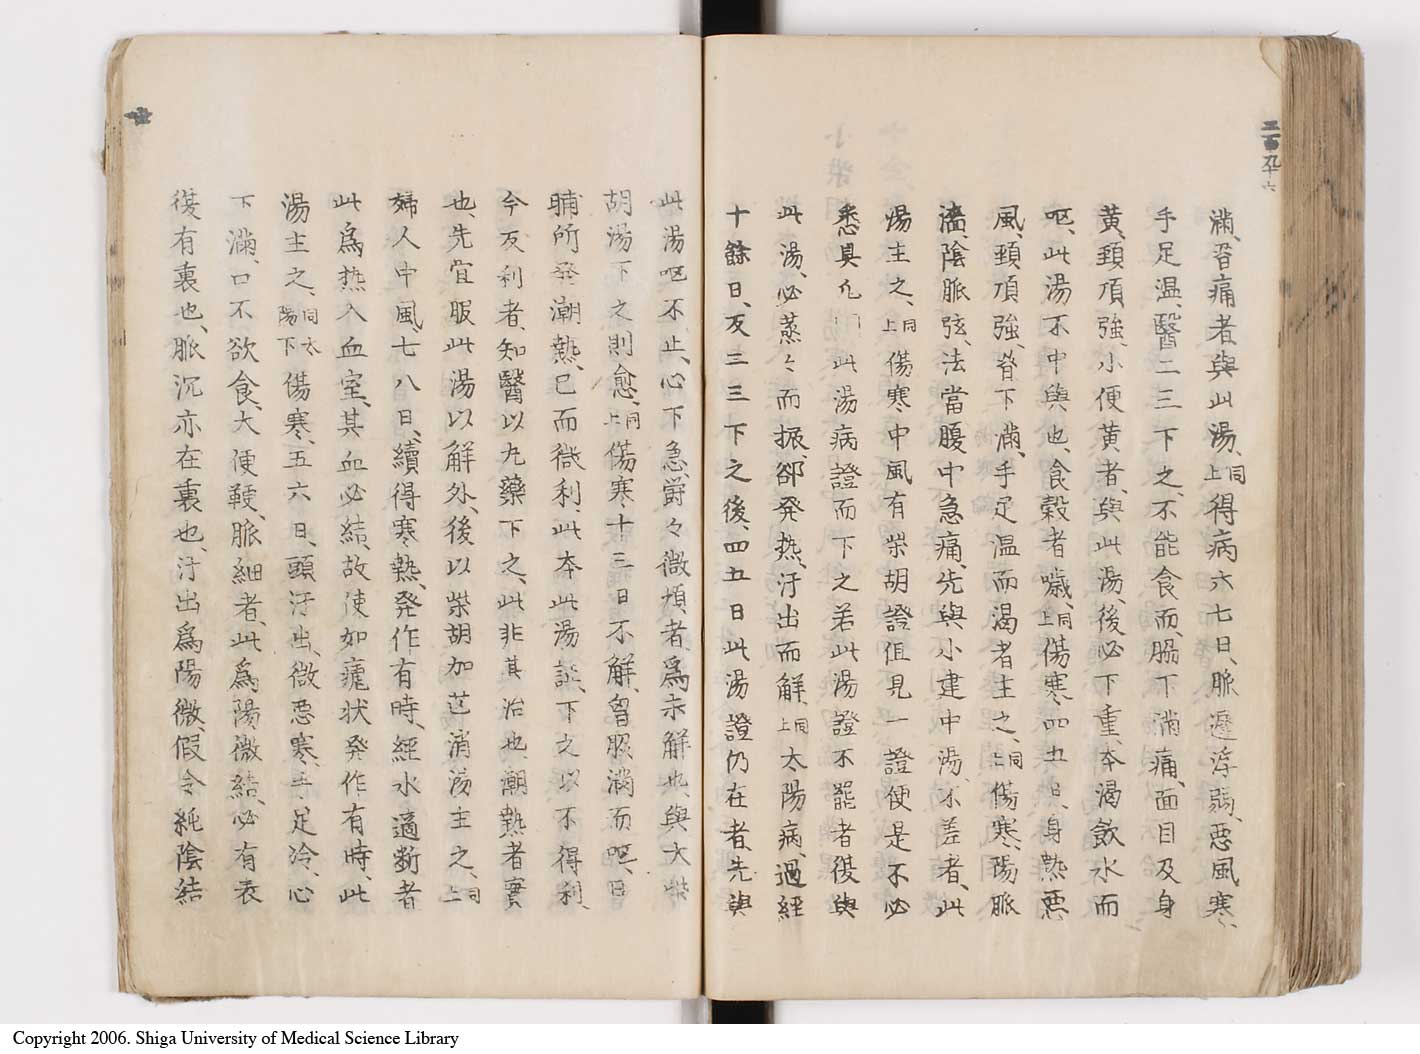 二百九十六
滿、脇痛者、與此湯、同上得病六七日、脈遲浮弱、惡風寒、
手足温、醫二三下之、不能食而脇下滿痛、面目及身
黄、頸項強、小便黄者、與此湯、後必下重、本渇飲水而
嘔、此湯不中與也、食穀者噦、同上傷寒四五日、身熱惡
風、頸項強、脅下滿、手足温而渇者主之、同上傷寒、陽脈
濇、陰脈弦、法當腹中急痛、先與小建中湯、不差者、此
湯主之、同上傷寒中風有柴胡證但見一證便是不必
悉具凡 此湯病證而下之若此湯證不罷者復與
此湯、必蒸々而振、郤発熱、汗出而解、同上太陽病、過經
十餘日、反二三下之後、四五日此湯證仍在者、先與
此湯嘔不止、心下急、欝々微煩者、爲未解也、與大柴
胡湯下之則愈、同上傷寒十三日不解、胷脇滿而嘔、日
晡所発潮熱、已而微利、此本此湯證、下之以不得利、
今反利者、知醫以丸藥下之、此非其治也、潮熱者實
也、先宜服此湯以解外、後以柴胡加芒消湯主之、同上
婦人中風、七八日、續得寒熱、発作有時、經水適断者
此爲熱入血室、其血必結、故使如瘧状発作有時、此
湯主之、同太陽下傷寒、五六日、頭汗出、微惡寒、手足冷、心
下滿、口不欲食、大便鞕、脈細者、此爲陽微結、必有表
復有裏也、脈沉亦在裏也、汗出爲陽微、假令純陰結